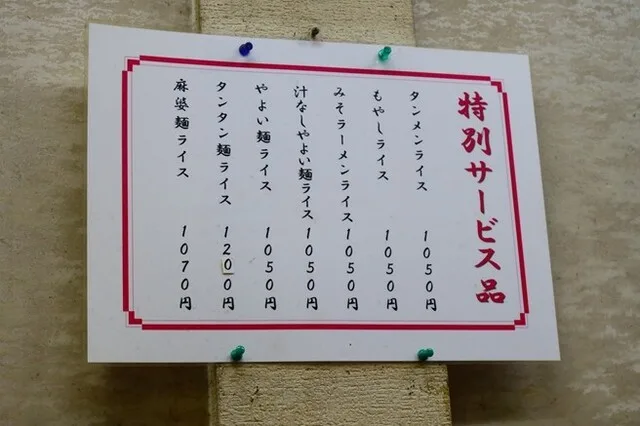 特別サービス品
タンメンライス 1050円
もやしライス 1050円
みそラーメンライス 1050円
汁なしやよい麺ライス 1050円
やよい麺ライス 1050円
タンタン麺ライス 1200円
麻婆麺ライス 1070円